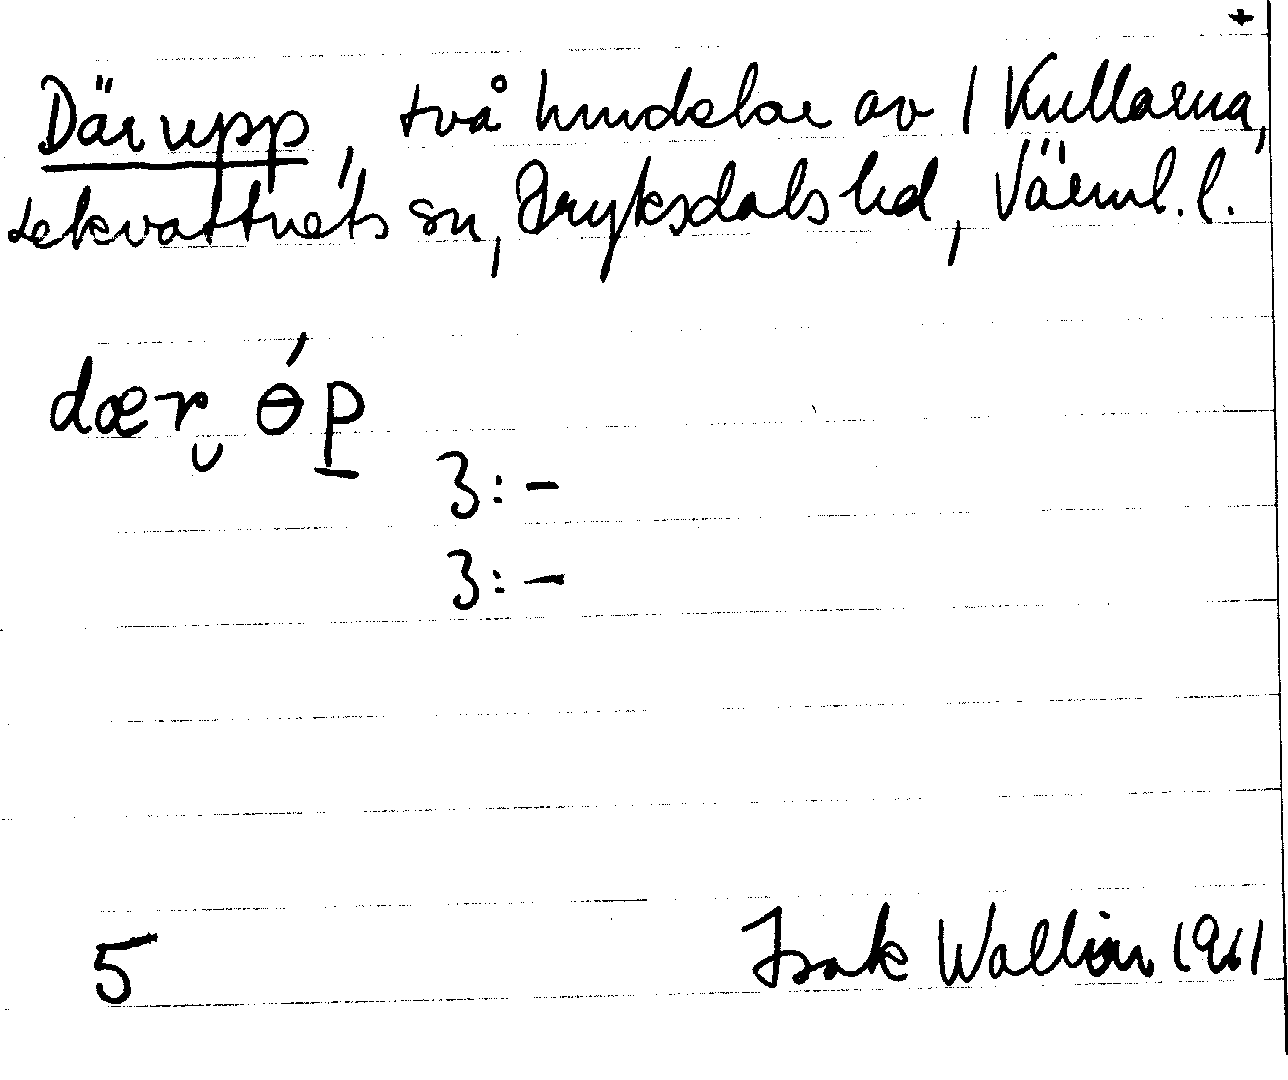 +
Där upp, två hmdelar av / Kullarna,
Lekvattnets sn, Fryksdals hd, Värml. l.
dær̮ ɵ́p̲
3:-
3:-
5 Isak Wallin 1961